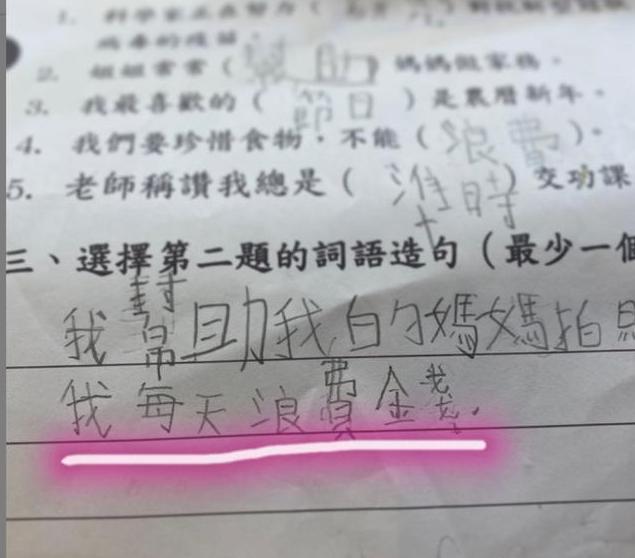 1. 科學家正在努力（
病毒的疫苗。
2. 姐姐常常（幫助）媽媽做家務。
3. 我最喜歡的（節日）是農曆新年。
4. 我們要珍惜食物，不能（浪費）。
5. 老師稱讚我總是（準時）交功課
三、選擇第二題的詞語造句（最少一個
我幫助我的媽媽拍
我每天浪費金錢.